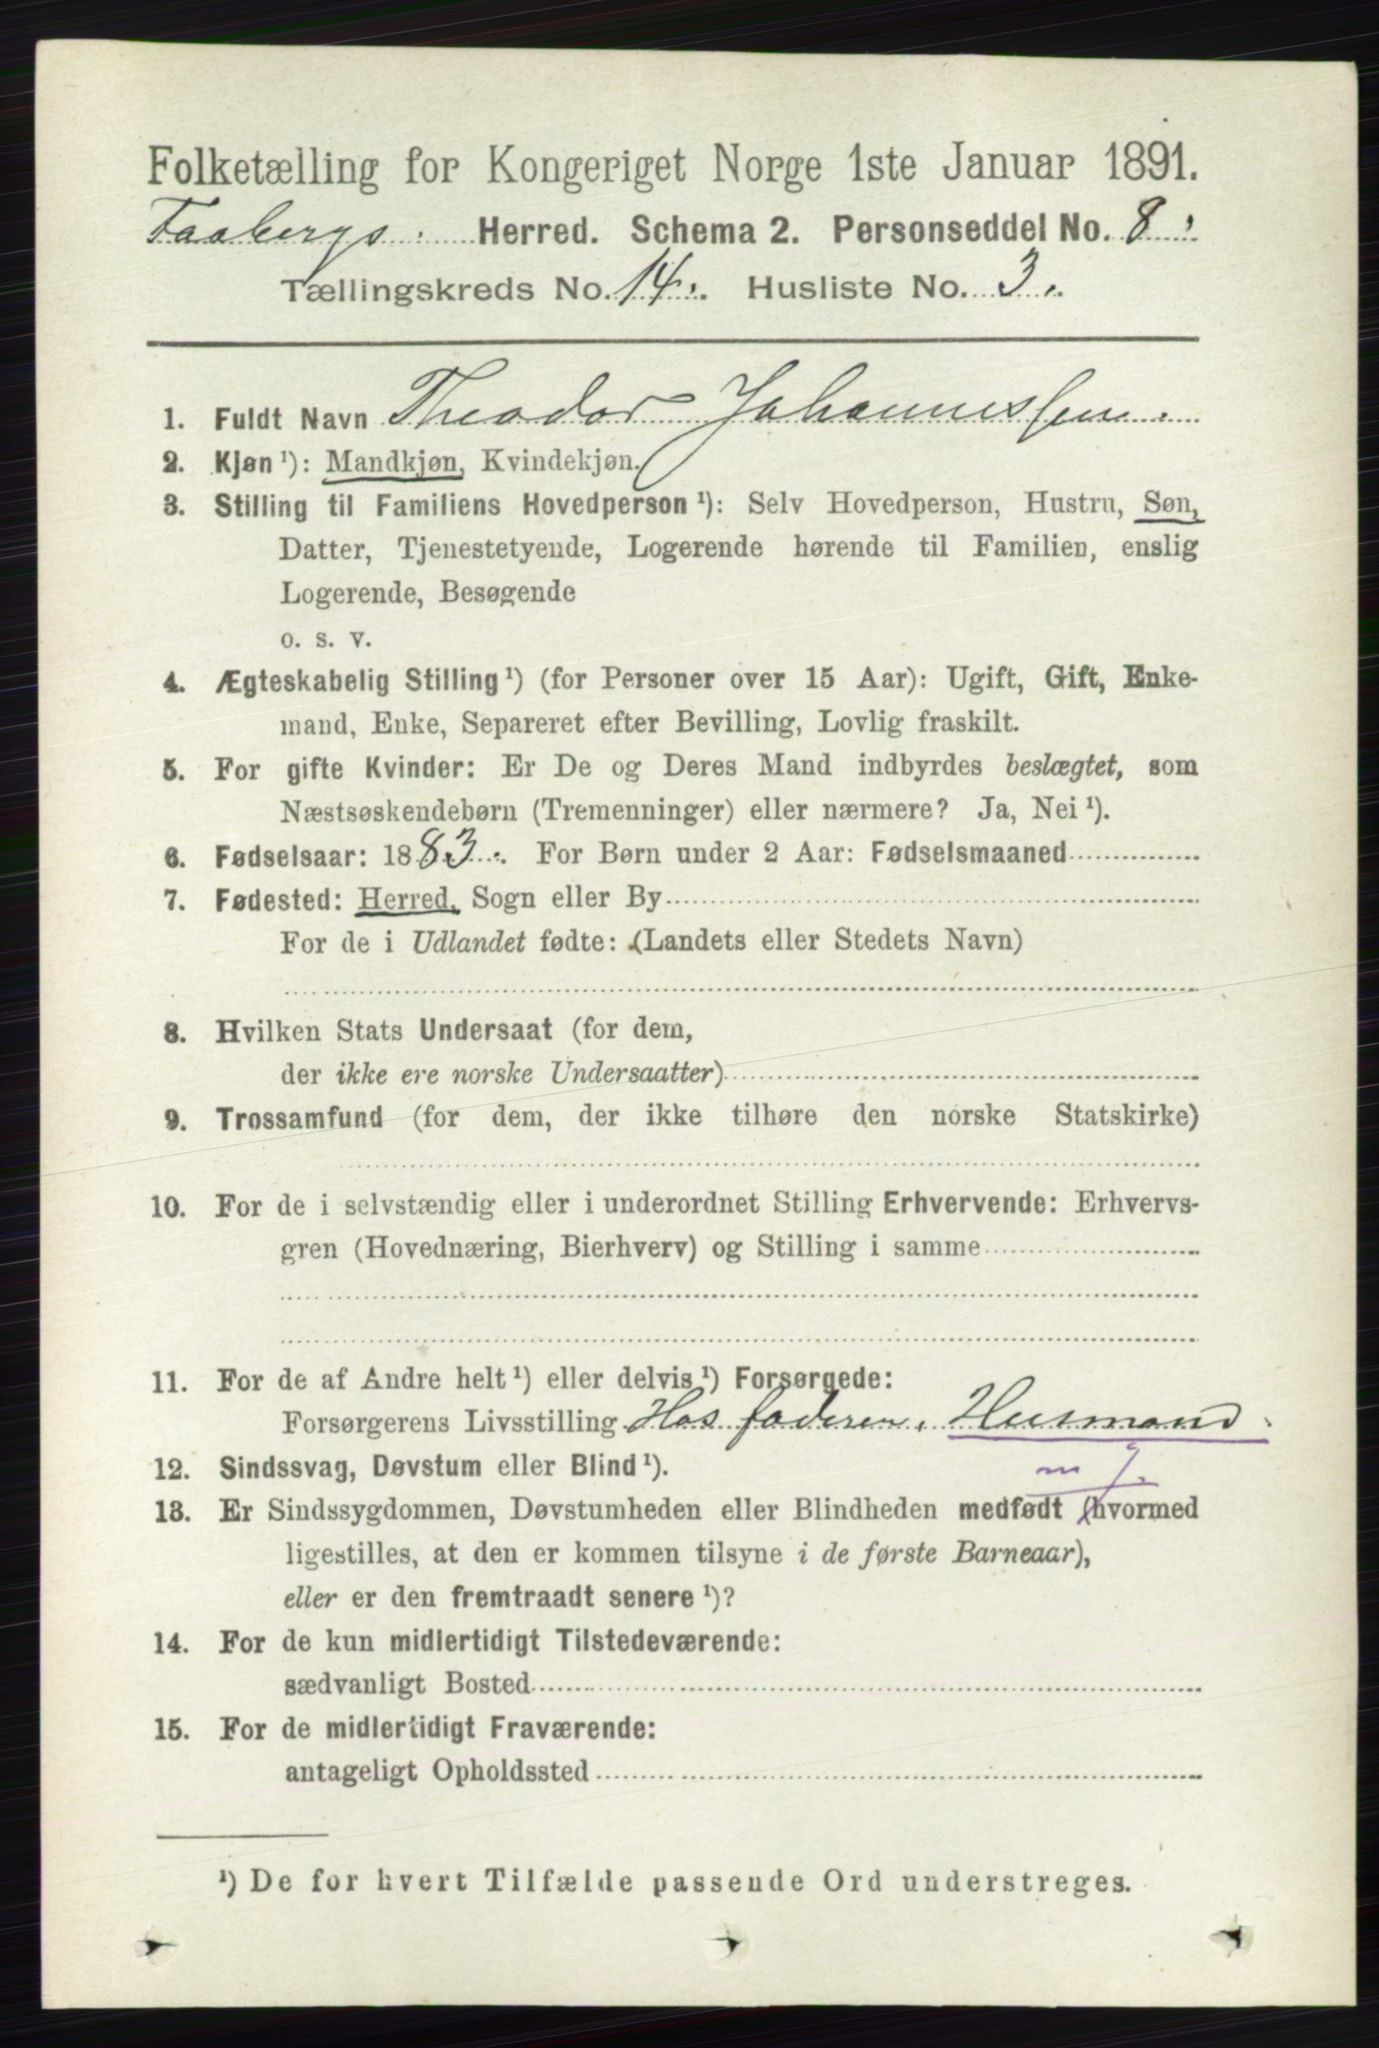 Folketælling for Kongeriget Norge 1ste Januar 1891.
Faabergs Herred. Schema 2. Personseddel No. 8.
Tællingskreds No. 14. Husliste No. 3.
1. Fuldt Navn Theodor Johannessen.
2. Kjøn ¹): Mandkjøn, Kvindekjøn.
3. Stilling til Familiens Hovedperson ¹): Selv Hovedperson, Hustru, Søn,
Datter, Tjenestetyende, Logerende hørende til Familien, enslig
Logerende, Besøgende
o. s. v.
4. Ægteskabelig Stilling ¹) (for Personer over 15 Aar): Ugift, Gift, Enke-
mand, Enke, Separeret efter Bevilling, Lovlig fraskilt.
5. For gifte Kvinder: Er De og Deres Mand indbyrdes beslægtet, som
Næstsøskendebørn (Tremenninger) eller nærmere? Ja, Nei ¹).
6. Fødselsaar: 1883. For Børn under 2 Aar: Fødselsmaaned
7. Fødested: Herred, Sogn eller By
For de i Udlandet fødte: (Landets eller Stedets Navn)
8. Hvilken Stats Undersaat (for dem,
der ikke ere norske Undersaatter)
9. Trossamfund (for dem, der ikke tilhøre den norske Statskirke)
10. For de i selvstændig eller i underordnet Stilling Erhvervende: Erhvervs-
gren (Hovednæring, Bierhverv) og Stilling i samme
11. For de af Andre helt ¹) eller delvis ¹) Forsørgede:
Forsørgerens Livsstilling Hos faderen, Husmand.
m J.
12. Sindssvag, Døvstum eller Blind ¹).
13. Er Sindssygdommen, Døvstumheden eller Blindheden medfødt (hvormed
ligestilles, at den er kommen tilsyne i de første Barneaar),
eller er den fremtraadt senere ¹)?
14. For de kun midlertidigt Tilstedeværende:
sædvanligt Bosted
15. For de midlertidigt Fraværende:
antageligt Opholdssted
¹) De for hvert Tilfælde passende Ord understreges.